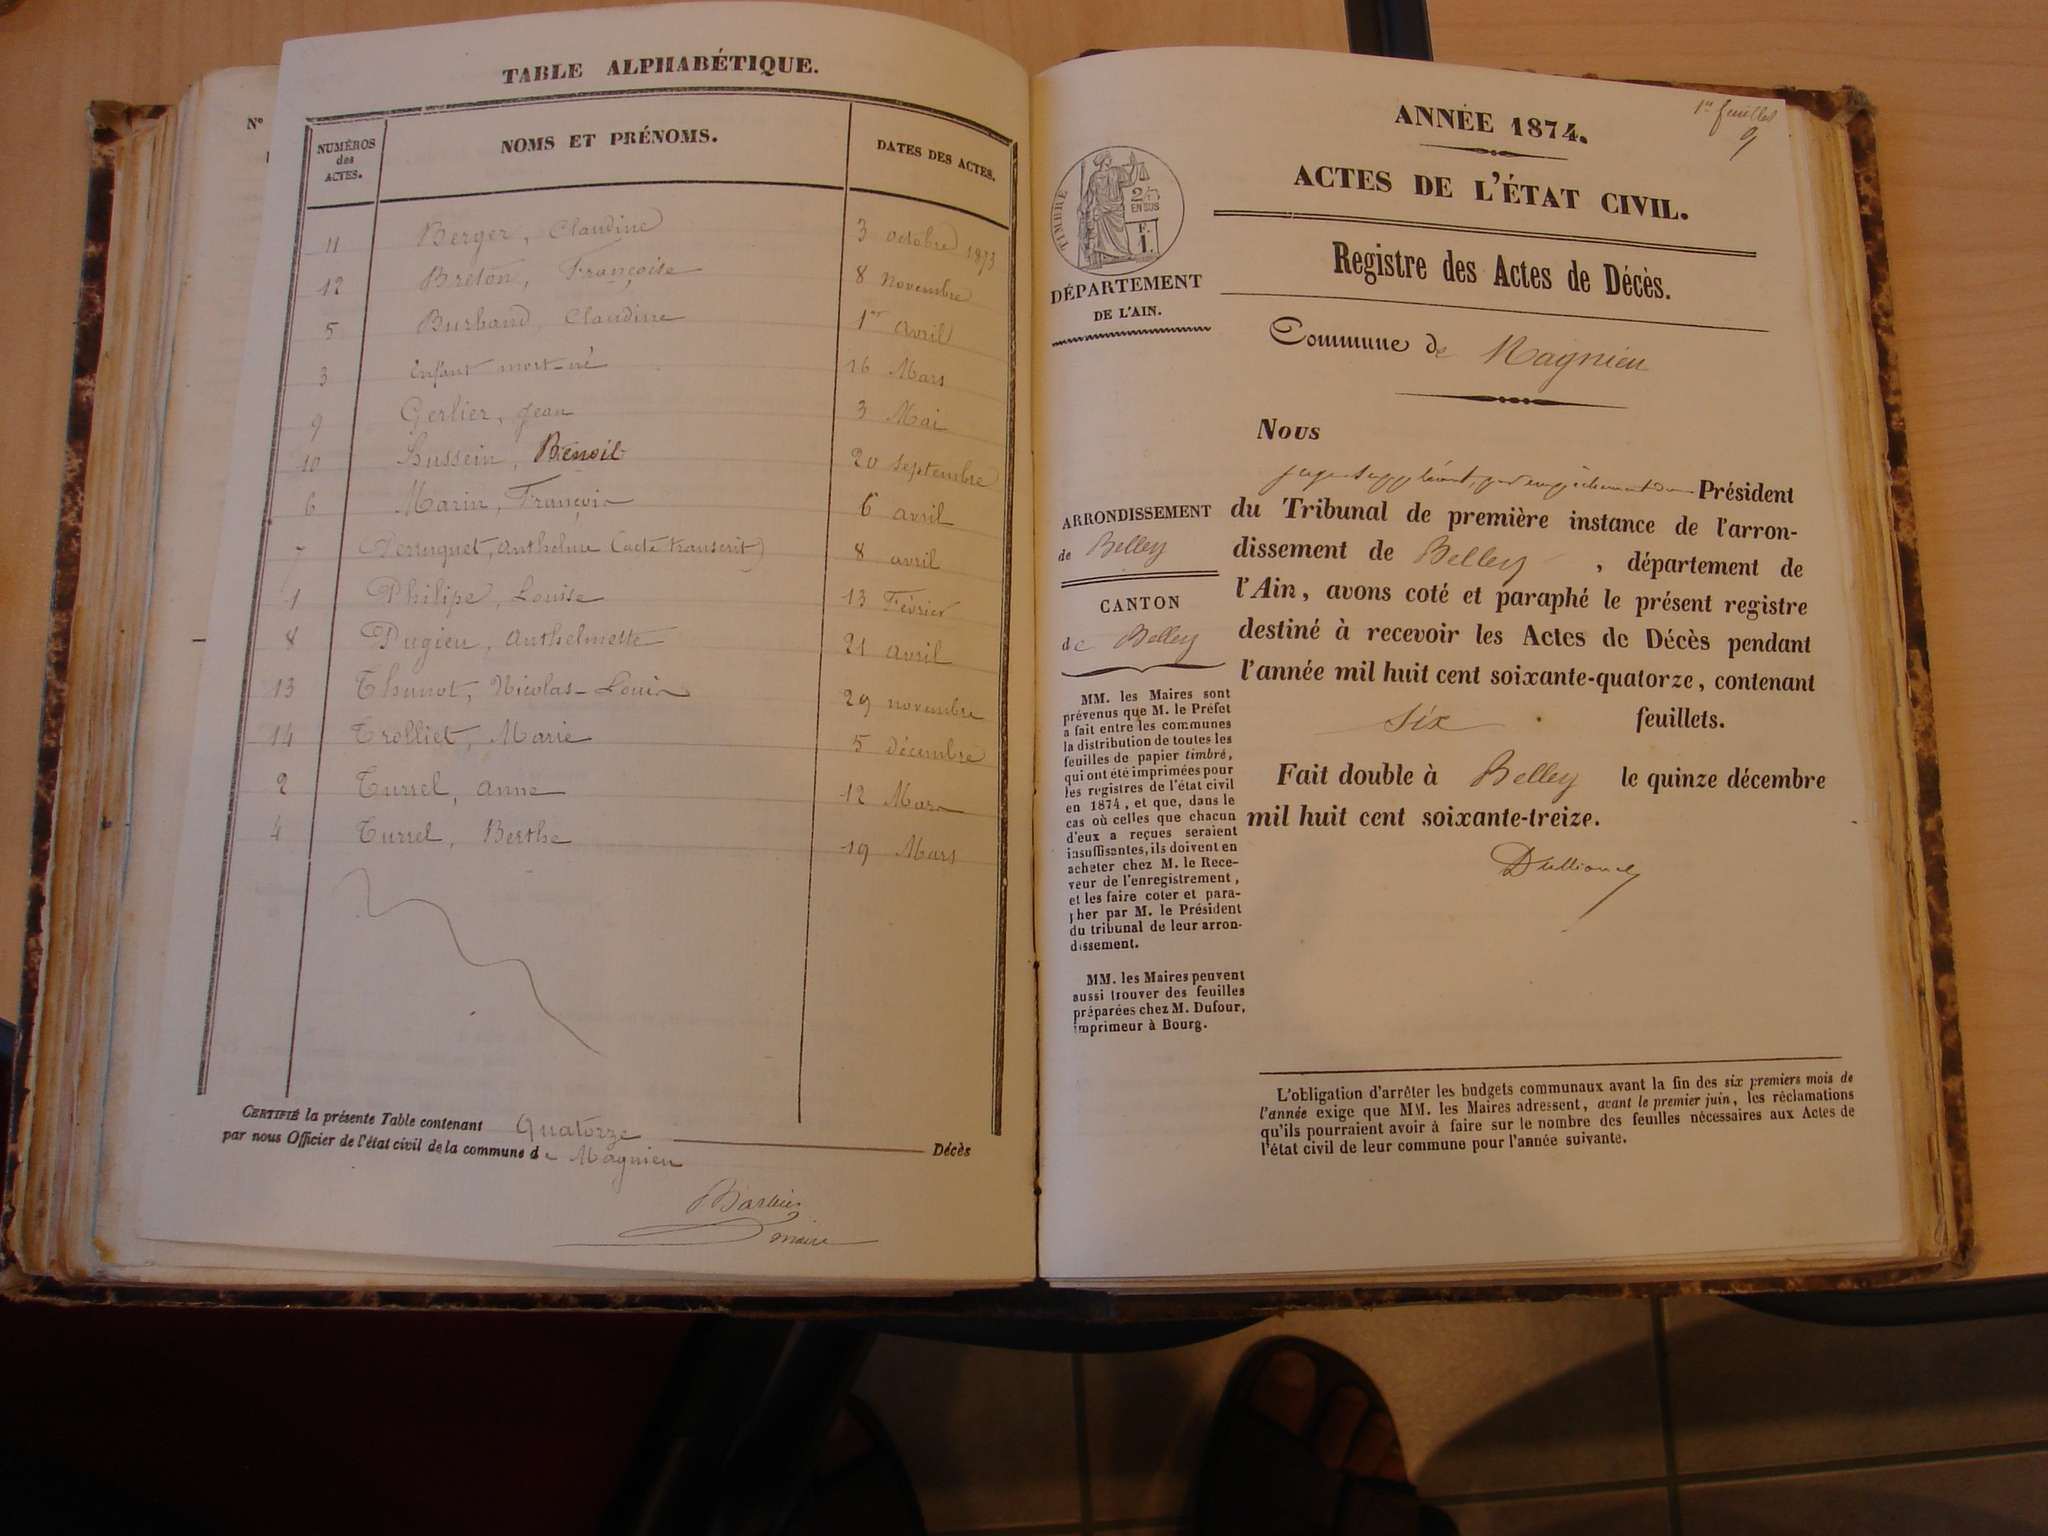 N°
TABLE ALPHABÉTIQUE.
NUMÉROS des ACTES. NOMS ET PRÉNOMS. DATES DES ACTES.
11 Berger, Claudine 3 octobre 1873
12 Breton, Françoise 8 novembre
5 Burband, Claudine 1er avril
3 Enfant mort-né 16 Mars
9 Gerlier, Jean 3 Mai
10 Lussein, Benoit 20 septembre
6 Marin, François 6 avril
7 Anthelme (acte transcrit) 8 avril
1 Philipe, Louise 13 Février
8 Pugieu, Anthelmette 21 avril
13 Thunot, Nicolas-Louis 29 novembre
14 Trolliet, Marie 5 décembre
2 Turrel, Anne 12 Mars
4 Turrel, Berthe 19 Mars
CERTIFIÉ la présente Table contenant Quatorze Décès
par nous Officier de l'état civil de la commune de Magnieu
maire
1er feuillet
ANNÉE 1874.
ACTES DE L'ÉTAT CIVIL.
Registre des Actes de Décès.
TIMBRE
2/10
EN SUS
F.
1.
DÉPARTEMENT
DE L'AIN.
Commune de Magnieu
Nous
juge suppléant, par empêchement du Président
du Tribunal de première instance de l'arron-
dissement de Belley, département de
l'Ain, avons coté et paraphé le présent registre
destiné à recevoir les Actes de Décès pendant
l'année mil huit cent soixante-quatorze, contenant
six feuillets.
Fait double à Belley le quinze décembre
mil huit cent soixante-treize.
ARRONDISSEMENT
de Belley
CANTON
de Belley
MM. les Maires sont
prévenus que M. le Préfet
a fait entre les communes
la distribution de toutes les
feuilles de papier timbré,
qui ont été imprimées pour
les registres de l'état civil
en 1874, et que, dans le
cas où celles que chacun
d'eux a reçues seraient
insuffisantes, ils doivent en
acheter chez M. le Rece-
veur de l'enregistrement,
et les faire coter et para-
pher par M. le Président
du tribunal de leur arron-
dissement.
MM. les Maires peuvent
aussi trouver des feuilles
préparées chez M. Dufour,
imprimeur à Bourg.
L'obligation d'arrêter les budgets communaux avant la fin des six premiers mois de
l'année exige que MM. les Maires adressent, avant le premier juin, les réclamations
qu'ils pourraient avoir à faire sur le nombre des feuilles nécessaires aux Actes de
l'état civil de leur commune pour l'année suivante.